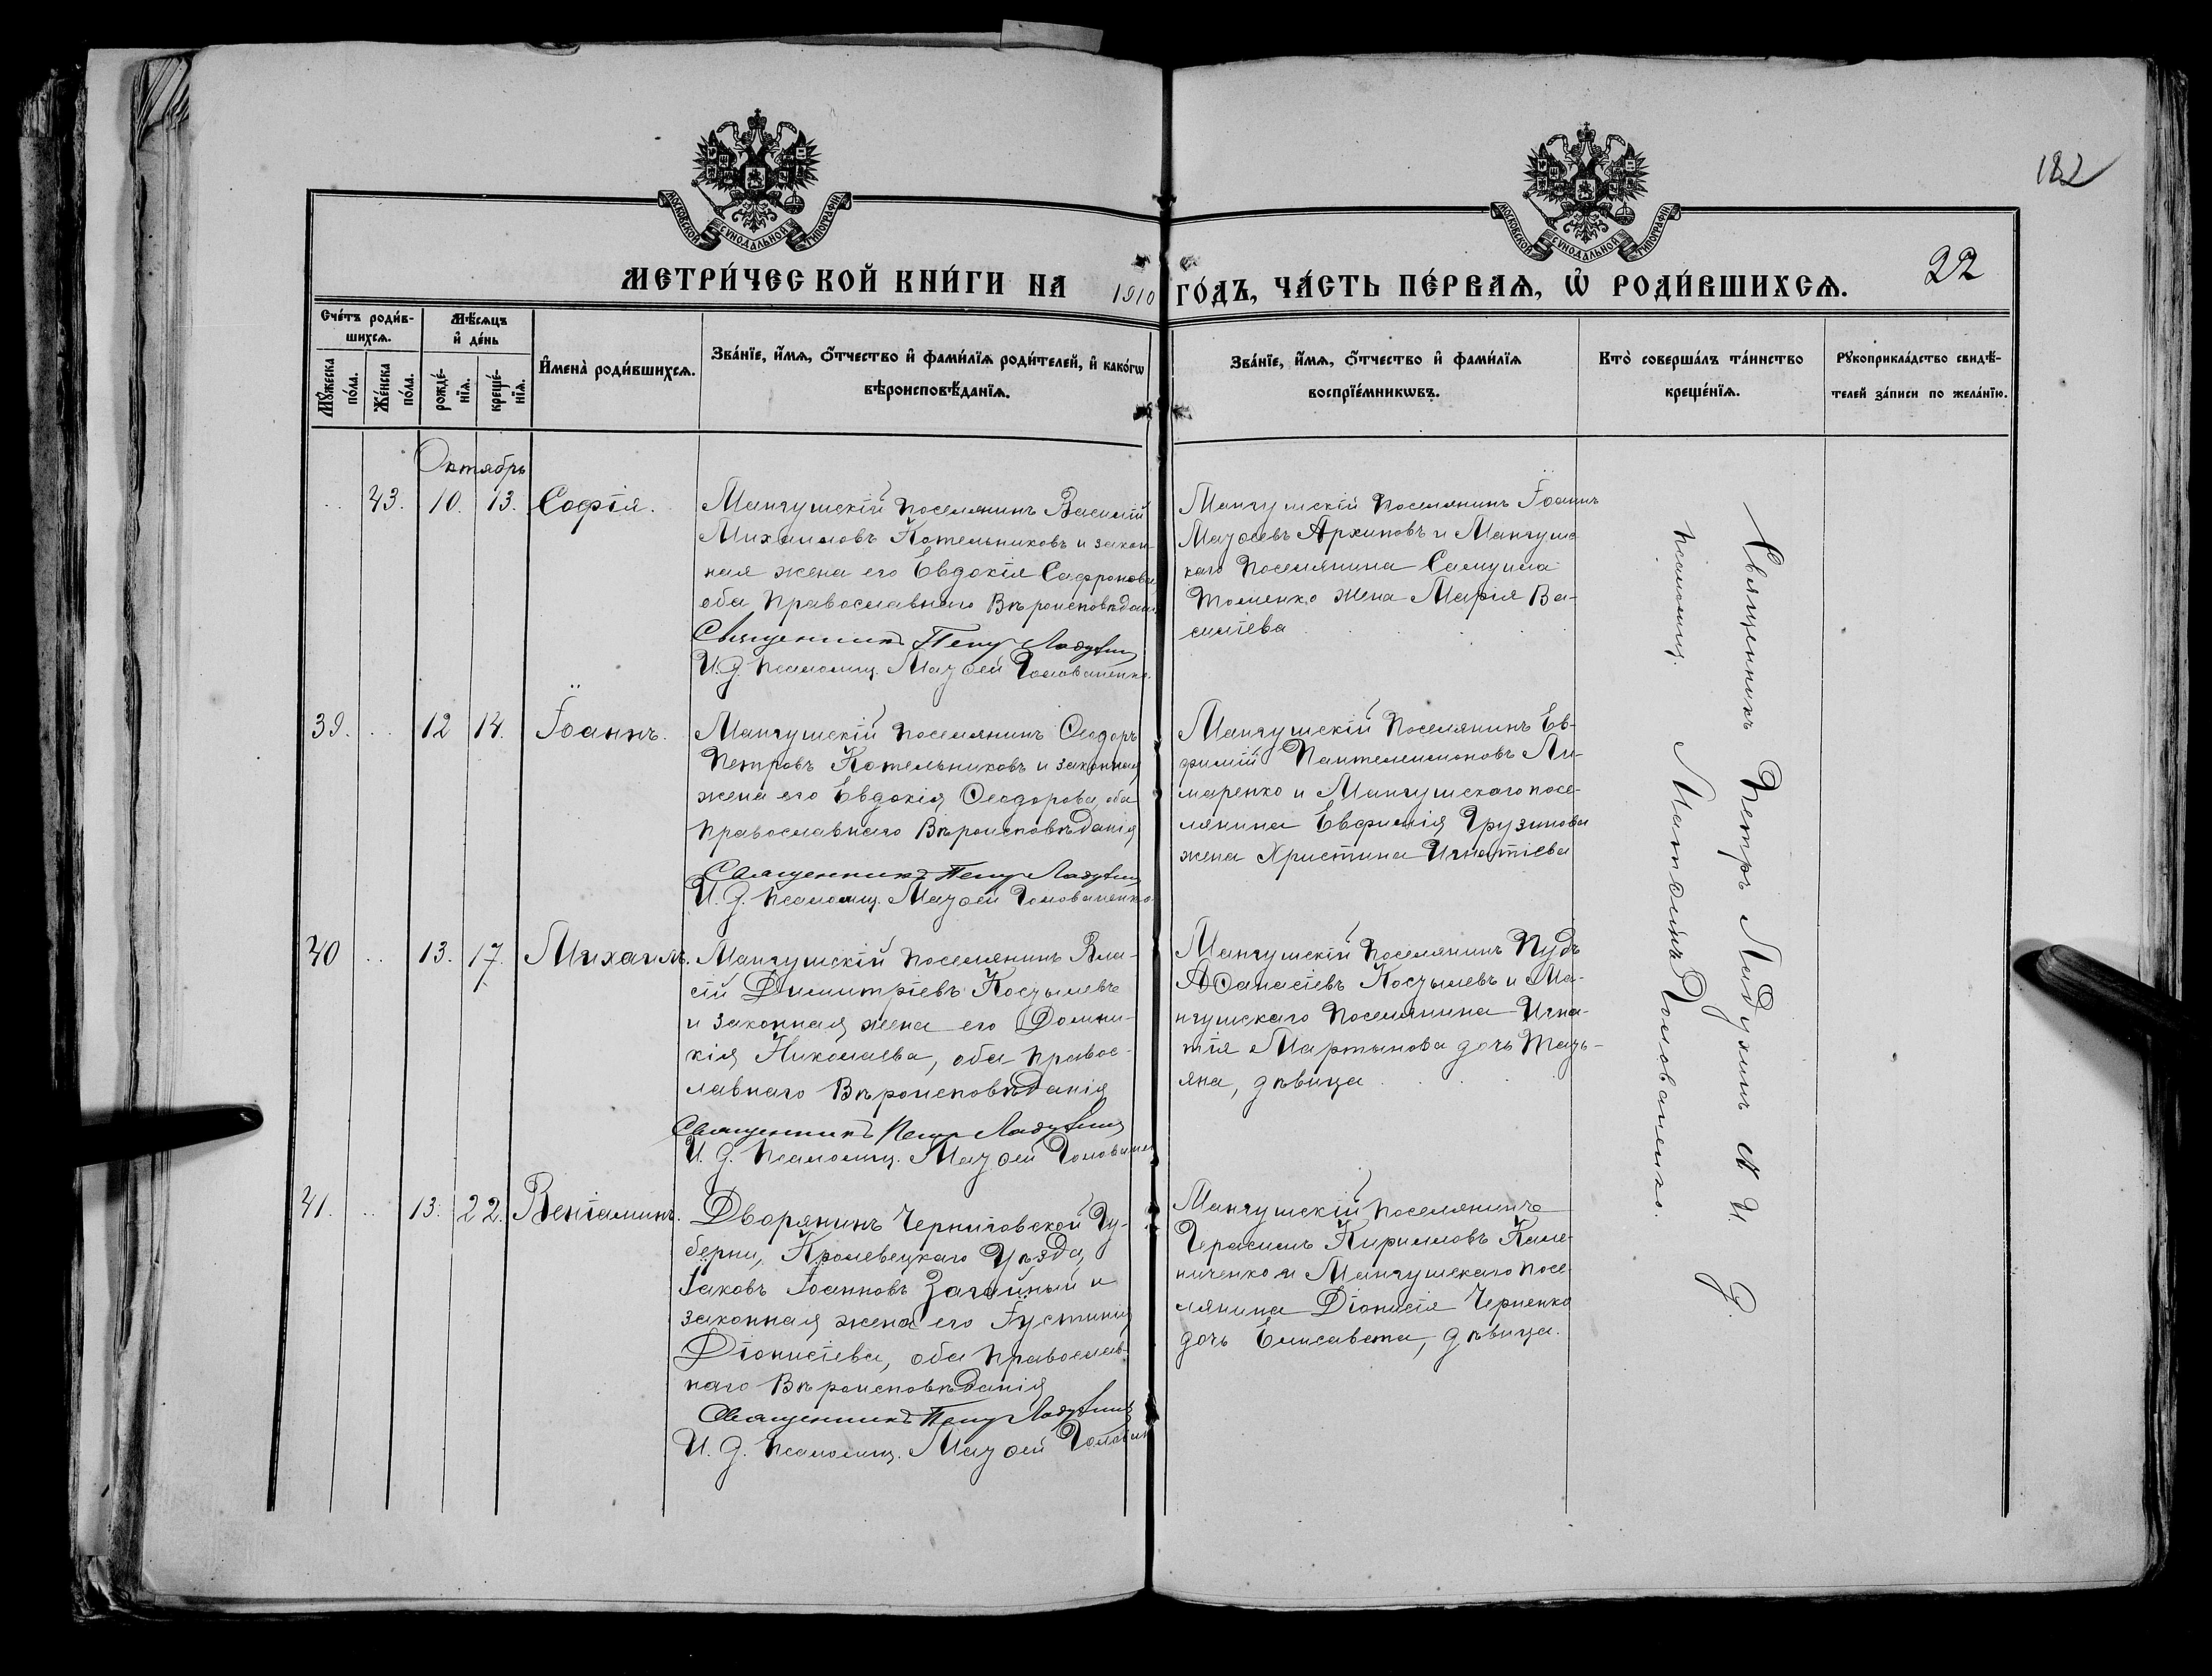 182
МОСКОВСКОЙ СѴНОДАЛЬНОЙ ТИПОГРАФІИ
МОСКОВСКОЙ СѴНОДАЛЬНОЙ ТИПОГРАФІИ
МЕТРИ́ЧЕСКОЙ КНИ́ГИ НА 1910 ГО́ДЪ, ЧА́СТЬ ПЕ́РВАѦ, Ѽ РОДИ́ВШИХСѦ. 22
Сче́тъ роди́в-
шихсѧ.
Мꙋ́жеска
по́ла.
Же́нска
по́ла.
Мѣ́сѧцъ
и҆ де́нь
рожде́-
нїѧ.
креще́-
нїѧ.
И҆мена̀ роди́вшихсѧ.
Зва́нїе, и҆́мѧ, ѻ҆́тчество и҆ фами́лїѧ роди́телей, и҆ како́гѡ
вѣроисповѣ́данїѧ.
Зва́нїе, и҆́мѧ, ѻ҆́тчество и҆ фами́лїѧ
воспрїе́мникѡвъ.
Кто̀ соверша́лъ та́инство
креще́нїѧ.
Рꙋкоприкла́дство свидѣ́-
телей за́писи по жела́нїю.
Октябрь
43. 10. 13. Софія.
Мангушскій поселянинъ Василій
Михаиловъ Котельниковъ и закон-
ная жена его Евдокія Сафронова
оба Православнаго Вѣроисповѣдан.
Священникъ Петръ Ладухин
И.д. псаломщ. Матѳей Головаченко.
Мангушскій поселянинъ Іоаннъ
Матѳеевъ Архиповъ и Мангушс-
каго поселянина Самуила
Томенко жена Марія Ва-
силіева
39. 12 14. Іоаннъ.
Мангушскій поселянинъ Ѳеодоръ
Петровъ Котельниковъ и законная
жена его Евдокія Ѳеодорова, оба
православнаго Вѣроисповѣданія
Священникъ Петръ Ладухин
И.д. псаломщ. Матѳей Головаченко
Мангушскій поселянинъ Ев-
фимій Пантелеимоновъ Ли-
маренко и Мангушскаго посе-
лянина Евфимія Грузинова
жена Христина Игнатіева
40 13. 17. Михаилъ.
Мангушскій поселянинъ Вла-
сій Димитріевъ Костылевъ
и законная жена его Домни-
кія Николаева, оба правос-
лавнаго Вѣроисповѣданія
Священникъ Петръ Ладухин
И.д. псаломщ. Матѳей Головачен
Мангушскій поселянинъ Пудъ
Аѳанасіевъ Костылевъ и Ма-
нгушскаго поселянина Игна-
тія Мартынова дочь Тать-
яна, дѣвица
41. 13. 22. Веніаминъ.
Дворянинъ Черниговской Гу-
берни, Кролевецкаго Уѣзда,
Іаковъ Іоанновъ Загайный и
законная жена его Іустинія
Діонисіева, оба православ-
наго Вѣроисповѣданія
Священникъ Петръ Ладухин
И.д. псаломщ. Матѳей Головач
Мангушскій поселянинъ
Герасимъ Кирилловъ Каме-
ниченко и Мангушскаго посе-
лянина Діонисія Черненко
дочь Елисавета, дѣвица.
Священникъ Петръ Ладухинъ и И. д.
псаломщ. Матѳеинъ Головаченко.